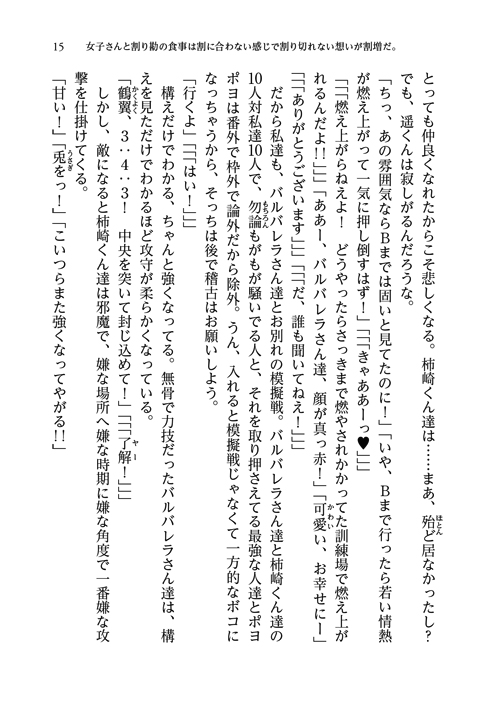 15　女子さんと割り勘の食事は割に合わない感じで割り切れない想いが割増だ。
とっても仲良くなれたからこそ悲しくなる。柿崎くん達は……まあ、殆ど居なかったし？
でも、遥くんは寂しがるんだろうな。
「ちっ、あの雰囲気ならＢまでは固いと見てたのに！」「いや、Ｂまで行ったら若い情熱
が燃え上がって一気に押し倒すはず！」「「「きゃああーっ♥」」」
「「「燃え上がらねえよ！　どうやったらさっきまで燃やされかかってた訓練場で燃え上が
れるんだよ！！」」」「ああー、バルバレラさん達、顔が真っ赤！」「可愛い、お幸せにー」
「「「ありがとうございます」」」「「「だ、誰も聞いてねえ！」」」
だから私達も、バルバレラさん達とお別れの模擬戦。バルバレラさん達と柿崎くん達の
10人対私達10人で、勿論もがもが騒いでる人と、それを取り押さえてる最強な人達とポヨ
ポヨは番外で枠外で論外だから除外。うん、入れると模擬戦じゃなくて一方的なボコに
なっちゃうから、そっちは後で稽古はお願いしよう。
「行くよ」「「「はい！」」」
構えだけでわかる、ちゃんと強くなってる。無骨で力技だったバルバレラさん達は、構
えを見ただけでわかるほど攻守が柔らかくなっている。
「鶴翼、３・４・３！　中央を突いて封じ込めて！」「「「了解！」」」
しかし、敵になると柿崎くん達は邪魔で、嫌な場所へ嫌な時期に嫌な角度で一番嫌な攻
撃を仕掛けてくる。
「甘い！」「兎をっ！」「こいつらまた強くなってやがる！！」